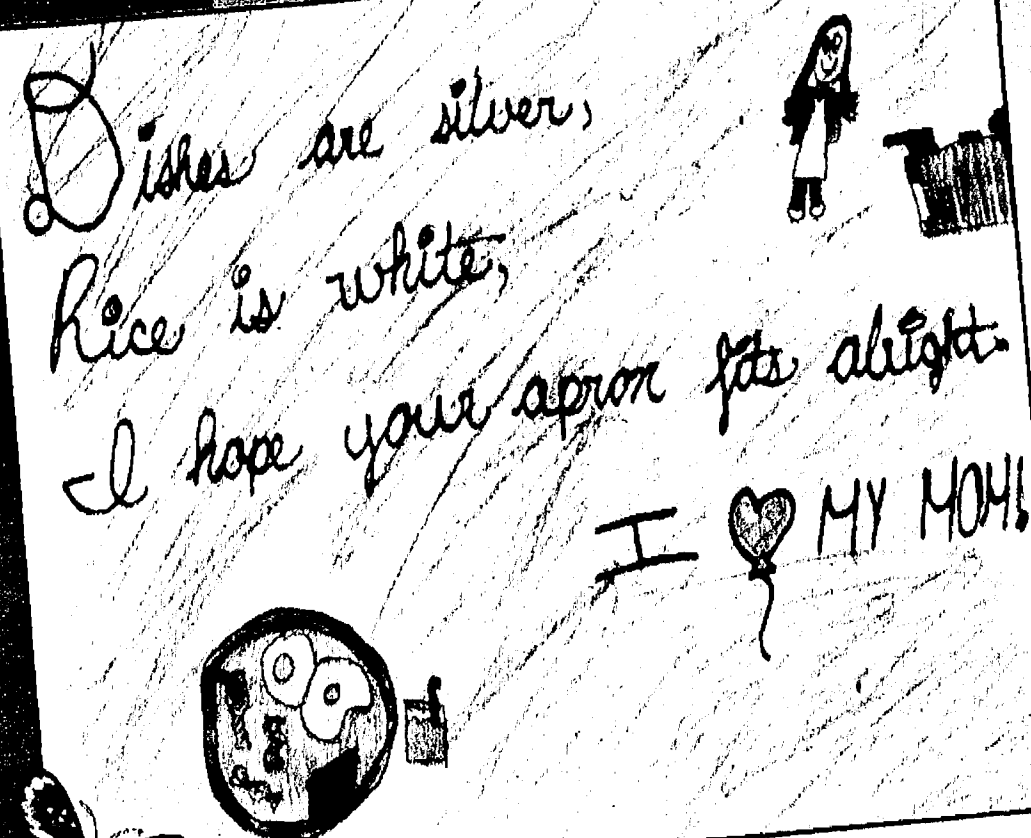 Dishes are silver,
Rice is white,
I hope your apron fits alright.
I MY MOM!